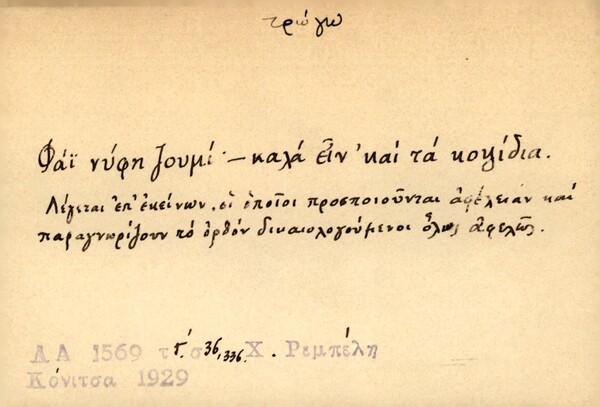 τρώγω
Φάϊ νύφη ζουμί· – καλά εἶν' καί τά κοψίδια.
Λέγεται ἐπ' ἐκείνων, οἱ ὁποῖοι προσποιοῦνται ἀφέλειαν καί
παραγνωρίζουν τό ὀρθόν δικαιολογούμενοι ὅλως ἀφελῶς.
ΛΑ 1569 τ. σ 36, 336. Χ. Ρεμπέλη
Κόνιτσα 1929